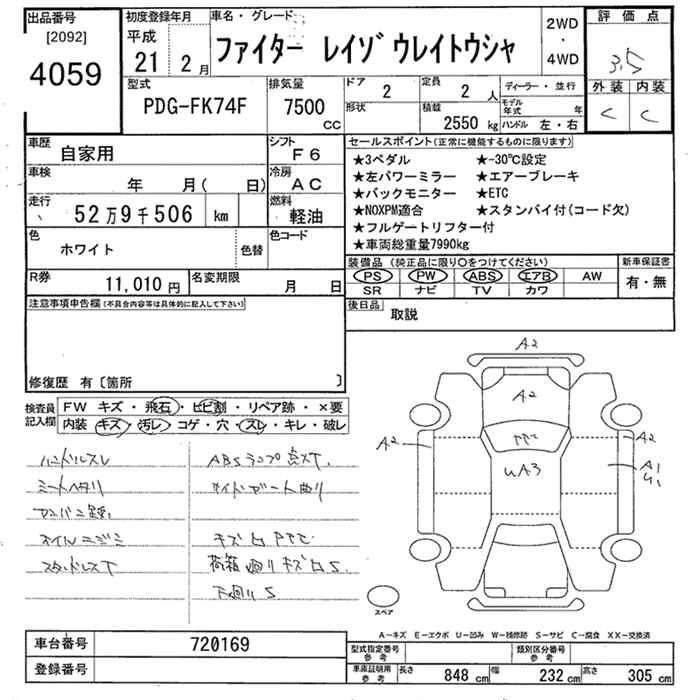 出品番号 初度登録年月 車名・グレード 2WD・4WD 評価点
[2092] 4059
平成 21 2月 ファイター レイゾウレイトウシャ 3.5
型式 排気量 ドア 2 定員 2 人 ディーラー・並行 外装 内装
PDG-FK74F 7500 CC 形状 積載 2550 kg モデル年式 年 ハンドル 左・右 C C
車歴 自家用 シフト F6 セールスポイント(正常に機能するものに限ります)
車検 年 月( 日) 冷房 AC
走行 52万9千506 km 燃料 軽油
色 ホワイト 色替 色コード
★3ペダル ★-30℃設定
★左パワーミラー ★エアーブレーキ
★バックモニター ★ETC
★NOXPM適合 ★スタンバイ付(コード欠)
★フルゲートリフター付
★車両総重量7990kg
R券 11,010 円 名変期限 月 日
装備品 (純正品に限り○をつけてください) 新車保証書
PS PW ABS エアB AW 有・無
SR ナビ TV カワ
注意事項申告欄(不具合内容等は具体的に記入して下さい)
後日品 取説
修復歴 有〔箇所 〕
検査員記入欄 FW キズ・飛石・ヒビ割・リペア跡・×要
内装 キズ・汚レ・コゲ・穴・スレ・キレ・破レ
ハンドルスレ
シートヘタリ
オイルニジミ
スタッドレスT
ABSランプ点灯
サイドガード曲り
キズ凹PTC
荷箱廻りキズ凹S
下廻りS
A2
A2
A2 A2
UA3 A1
U1
スペア
A-キズ E-エクボ U-凹み W-補修跡 S-サビ C-腐食 XX-交換済
車台番号 720169 型式指定番号 参考 類別区分番号 参考
登録番号 車庫証明用 参考 長さ 848 cm 幅 232 cm 高さ 305 cm